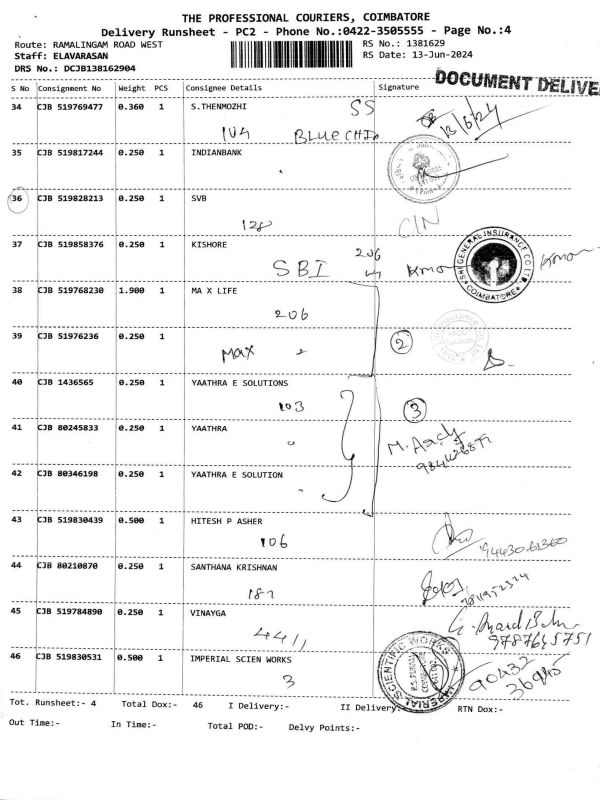 THE PROFESSIONAL COURIERS, COIMBATORE
Delivery Runsheet - PC2 - Phone No.:0422-3505555 - Page No.:4
Route: RAMALINGAM ROAD WEST RS No.: 1381629
Staff: ELAVARASAN RS Date: 13-Jun-2024
DRS No.: DCJB138162904
DOCUMENT DELIVE
S No Consignment No Weight PCS Consignee Details Signature
34 CJB 519769477 0.360 1 S.THENMOZHI SS
104 BLUE CHIP 13/6/24
35 CJB 519817244 0.250 1 INDIANBANK
36 CJB 519828213 0.250 1 SVB
128 CIN
37 CJB 519858376 0.250 1 KISHORE 206
SBI
SBI GENERAL INSURANCE CO. LTD. COIMBATORE
38 CJB 519768230 1.900 1 MA X LIFE
206
39 CJB 51976236 0.250 1
Max 2
40 CJB 1436565 0.250 1 YAATHRA E SOLUTIONS
103 3
41 CJB 80245833 0.250 1 YAATHRA
42 CJB 80346198 0.250 1 YAATHRA E SOLUTION
43 CJB 519830439 0.500 1 HITESH P ASHER
106 94430-61360
44 CJB 80210870 0.250 1 SANTHANA KRISHNAN
187
45 CJB 519784890 0.250 1 VINAYGA
4411 9787645751
46 CJB 519830531 0.500 1 IMPERIAL SCIEN WORKS
3 90432
36945
IMPERIAL SCIENTIFIC WORKS
Tot. Runsheet:- 4 Total Dox:- 46 I Delivery:- II Delivery:- RTN Dox:-
Out Time:- In Time:- Total POD:- Delvy Points:-